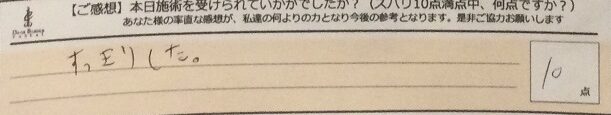 【ご感想】本日施術を受けられていかがでしたか?（ズバリ10点満点中、何点ですか?）
あなた様の率直な感想が、私達の何よりの力となり今後の参考となります。是非ご協力お願いします
すっきりした。
10
点